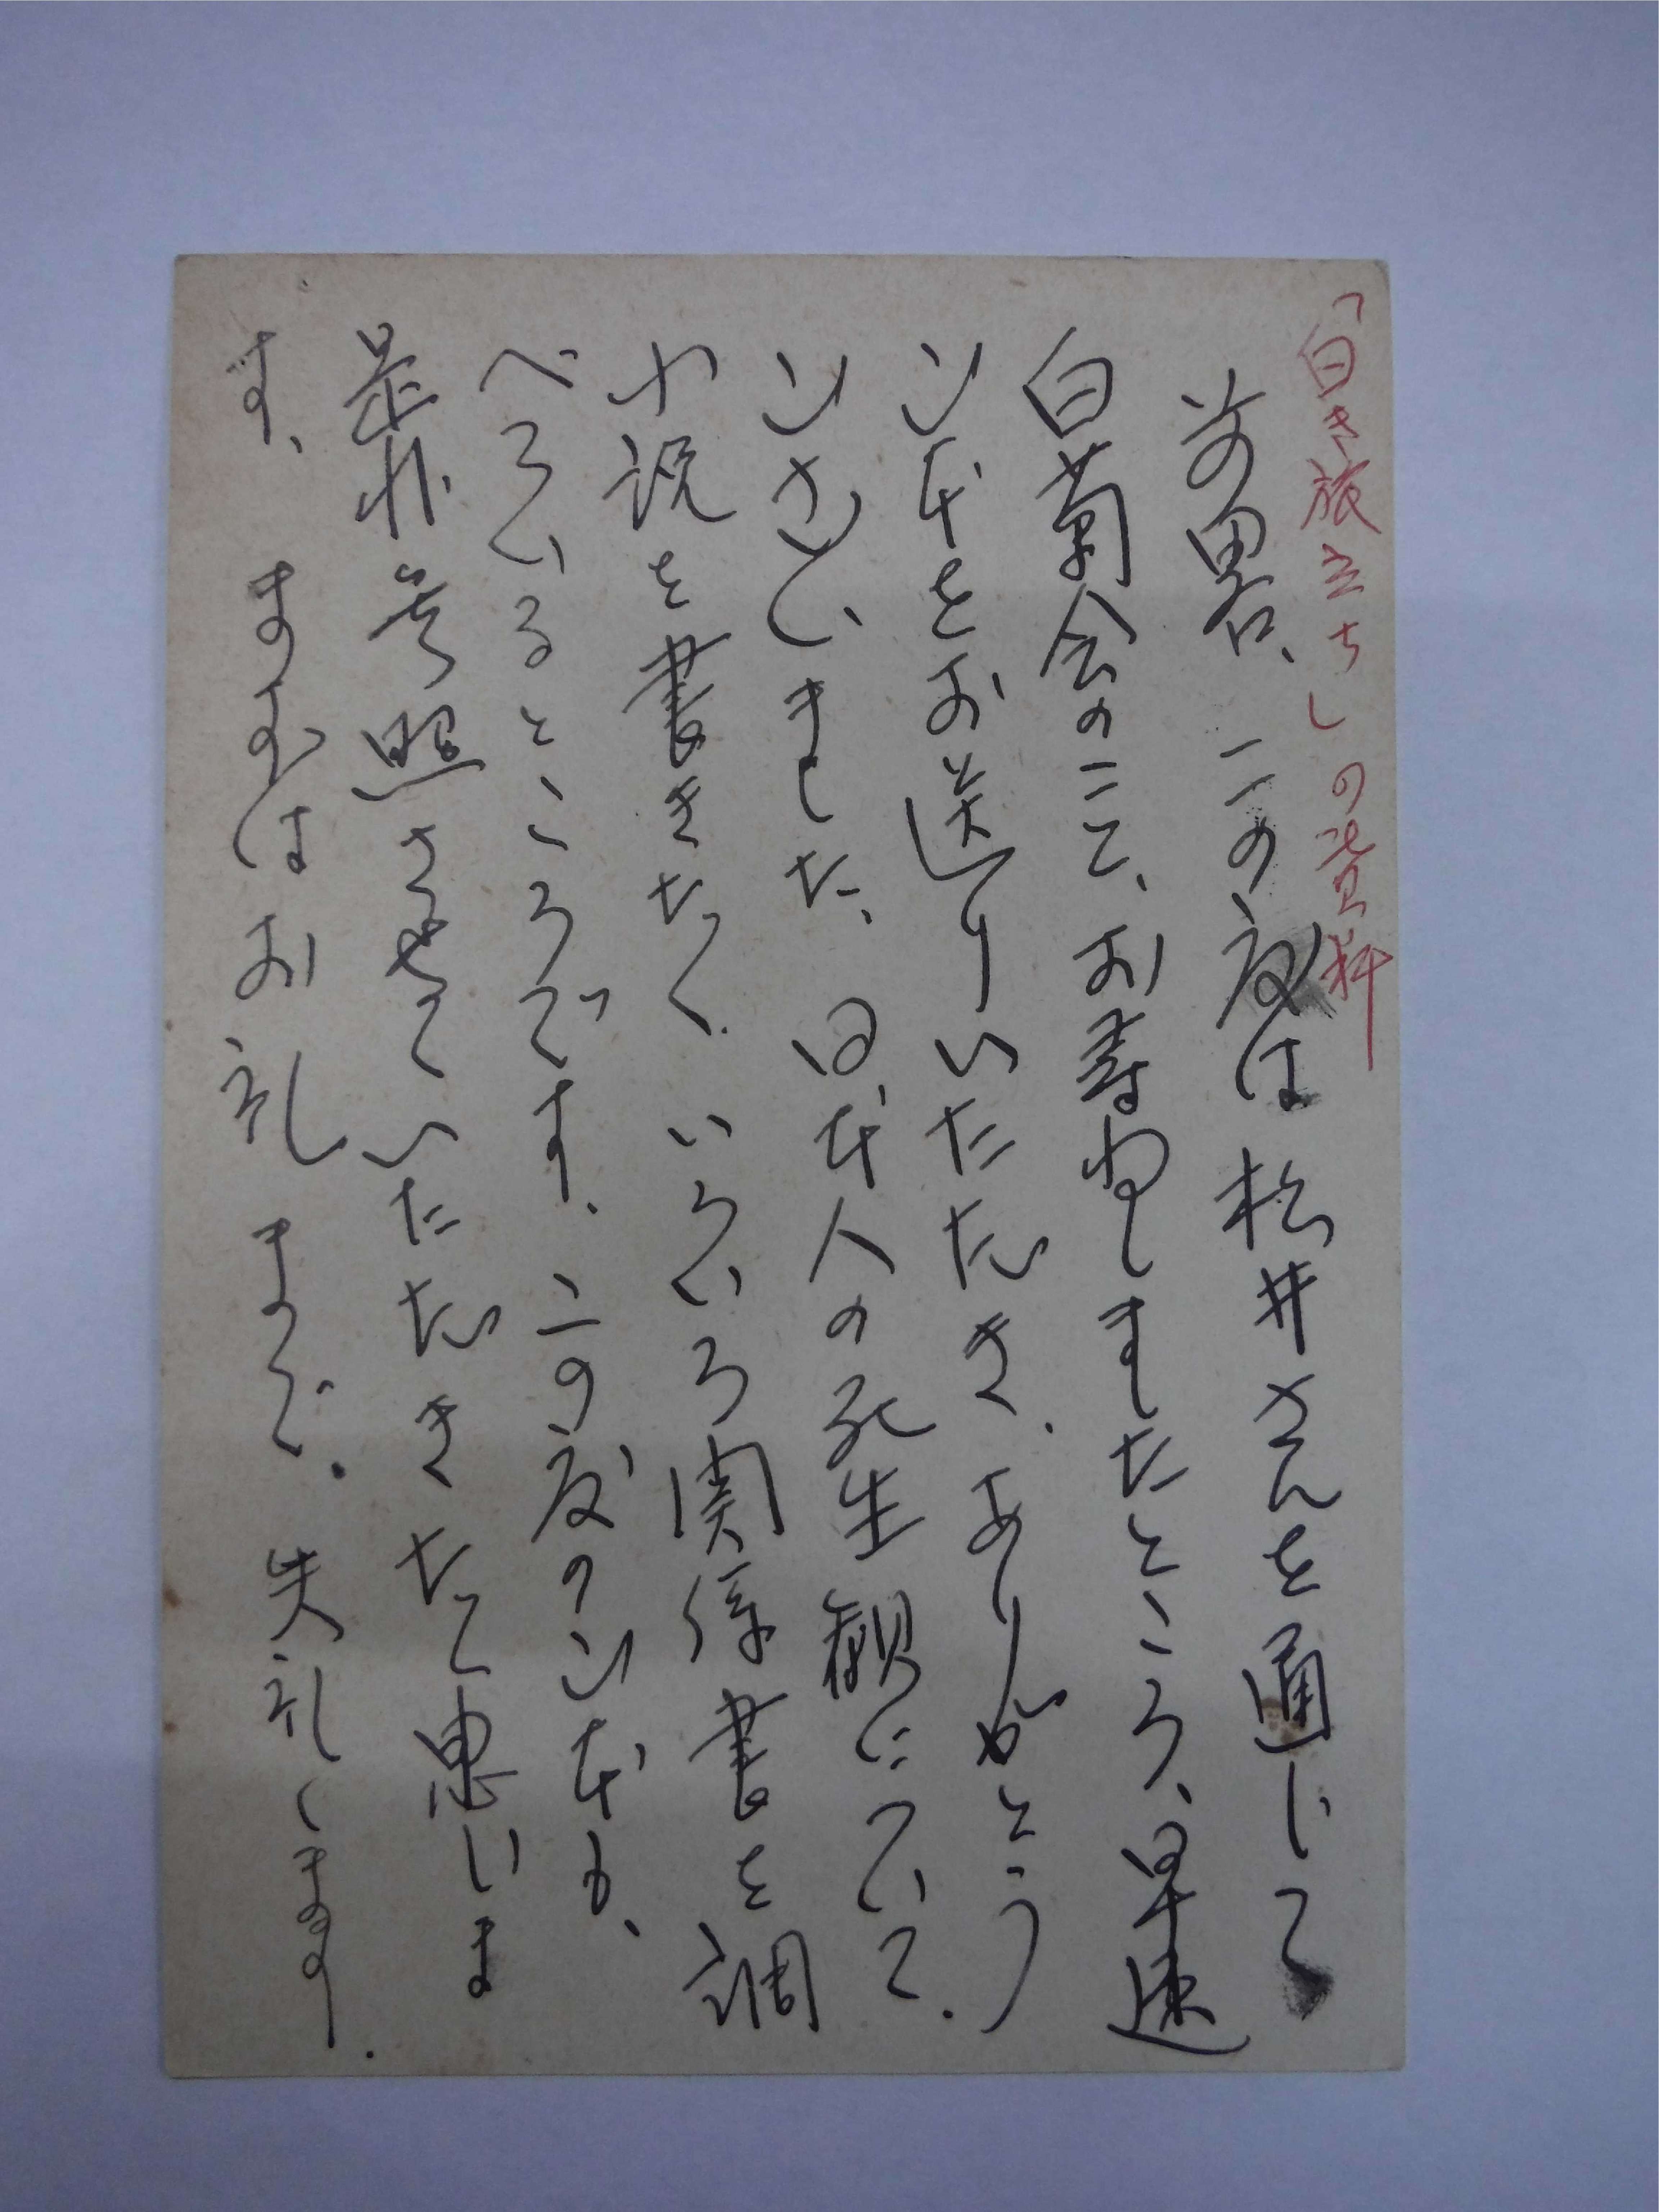 「白き旅立ち」の資料
前略、この度は松井さんを通じて
白菊会のこと、お尋ねしましたところ、早速
ご本をお送りいただき、ありがとう
ございました、日本人の死生観について、
小説を書きたく、いろいろ関係書を調
べているところです、この度のご本も、
是非参照させていただきたく思いま
す、まずはお礼まで、失礼します、